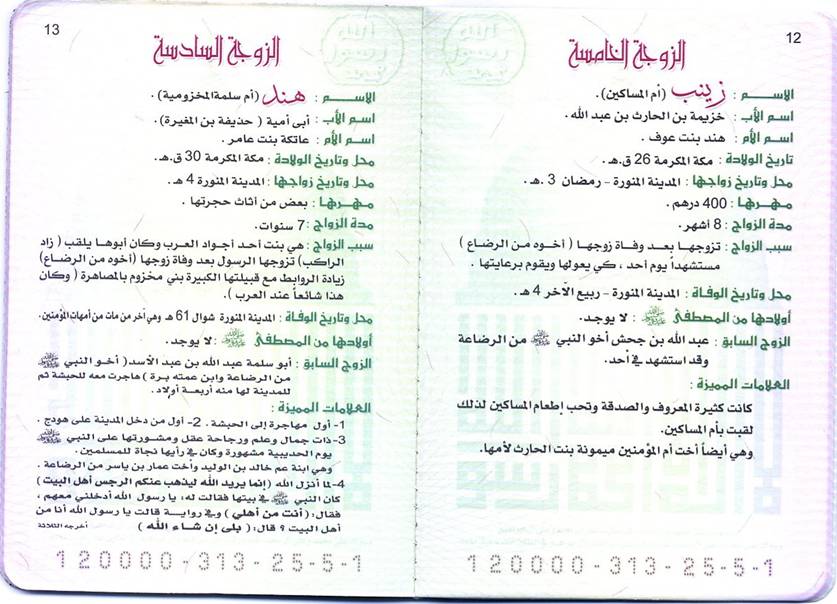 12
الزوجة الخامسة
الاسم : زينب (أم المساكين).
اسم الأب : خزيمة بن الحارث بن عبد الله.
اسم الأم : هند بنت عوف.
تاريخ الولادة : مكة المكرمة 26 ق.هـ.
محل وتاريخ زواجها : المدينة المنورة - رمضان 3 هـ.
مهرها : 400 درهم.
مدة الزواج : 8 أشهر.
سبب الزواج : تزوجها بعد وفاة زوجها ( أخوه من الرضاع )
مستشهداً يوم أحد ، كي يعولها ويقوم برعايتها .
محل وتاريخ الوفاة : المدينة المنورة - ربيع الآخر 4 هـ.
أولادها من المصطفى ﷺ : لا يوجد.
الزوج السابق : عبد الله بن جحش أخو النبي ﷺ من الرضاعة
وقد استشهد في أحد.
العلامات المميزة :
كانت كثيرة المعروف والصدقة وتحب إطعام المساكين لذلك
لقبت بأم المساكين.
وهي أيضاً أخت أم المؤمنين ميمونة بنت الحارث لأمها.
120000-313-25-5-1
13
الزوجة السادسة
الاسم : هند (أم سلمة المخزومية) .
اسم الأب : أبى أمية ( حذيفة بن المغيرة ).
اسم الأم : عاتكة بنت عامر .
محل وتاريخ الولادة : مكة المكرمة 30 ق.هـ.
محل وتاريخ زواجها : المدينة المنورة 4 هـ.
مهرها : بعض من أثاث حجرتها .
مدة الزواج : 7 سنوات.
سبب الزواج : هي بنت أحد أجواد العرب وكان أبوها يلقب ( زاد
الراكب) تزوجها الرسول بعد وفاة زوجها (أخوه من الرضاع)
زيادة الروابط مع قبيلتها الكبيرة بني مخزوم بالمصاهرة ( وكان
هذا شائعاً عند العرب ).
محل وتاريخ الوفاة : المدينة المنورة شوال 61 هـ وهي آخر من مات من أمهات المؤمنين.
أولادها من المصطفى ﷺ : لا يوجد.
الزوج السابق : أبو سلمة عبد الله بن عبد الأسد ( أخو النبي ﷺ
من الرضاعة وابن عمته برة ) هاجرت معه للحبشة ثم
للمدينة لها منه أربعة أولاد.
العلامات المميزة :
1- أول مهاجرة إلى الحبشة . 2- أول من دخل المدينة على هودج .
3- ذات جمال وعلم ورجاحة عقل ومشورتها على النبي ﷺ
يوم الحديبية مشهورة وكان في رأيها نجاة للمسلمين.
وهي ابنة عم خالد بن الوليد وأخت عمار بن ياسر من الرضاعة .
4- لما أنزل الله (إنما يريد الله ليذهب عنكم الرجس أهل البيت)
كان النبي ﷺ في بيتها فقالت له: يا رسول الله أدخلني معهم ،
فقال: (أنت من أهلي) وفي رواية قالت يا رسول الله أنا من
أهل البيت ؟ قال: ( بلى إن شاء الله ) أخرجه الثلاثة
120000-313-25-5-1